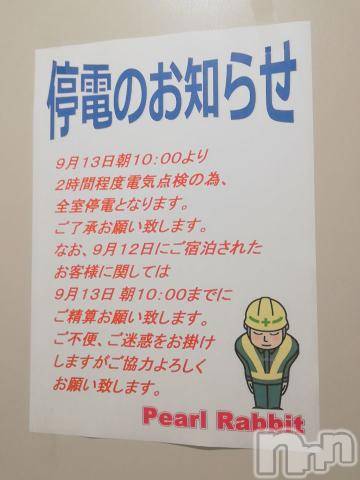 停電のお知らせ
9月13日朝10:00より
2時間程度電気点検の為、
全室停電となります。
ご了承お願い致します。
なお、9月12日にご宿泊された
お客様に関しては
9月13日 朝10:00までに
ご精算お願い致します。
ご不便、ご迷惑をお掛け
しますがご協力よろしく
お願い致します。
Pearl Rabbit